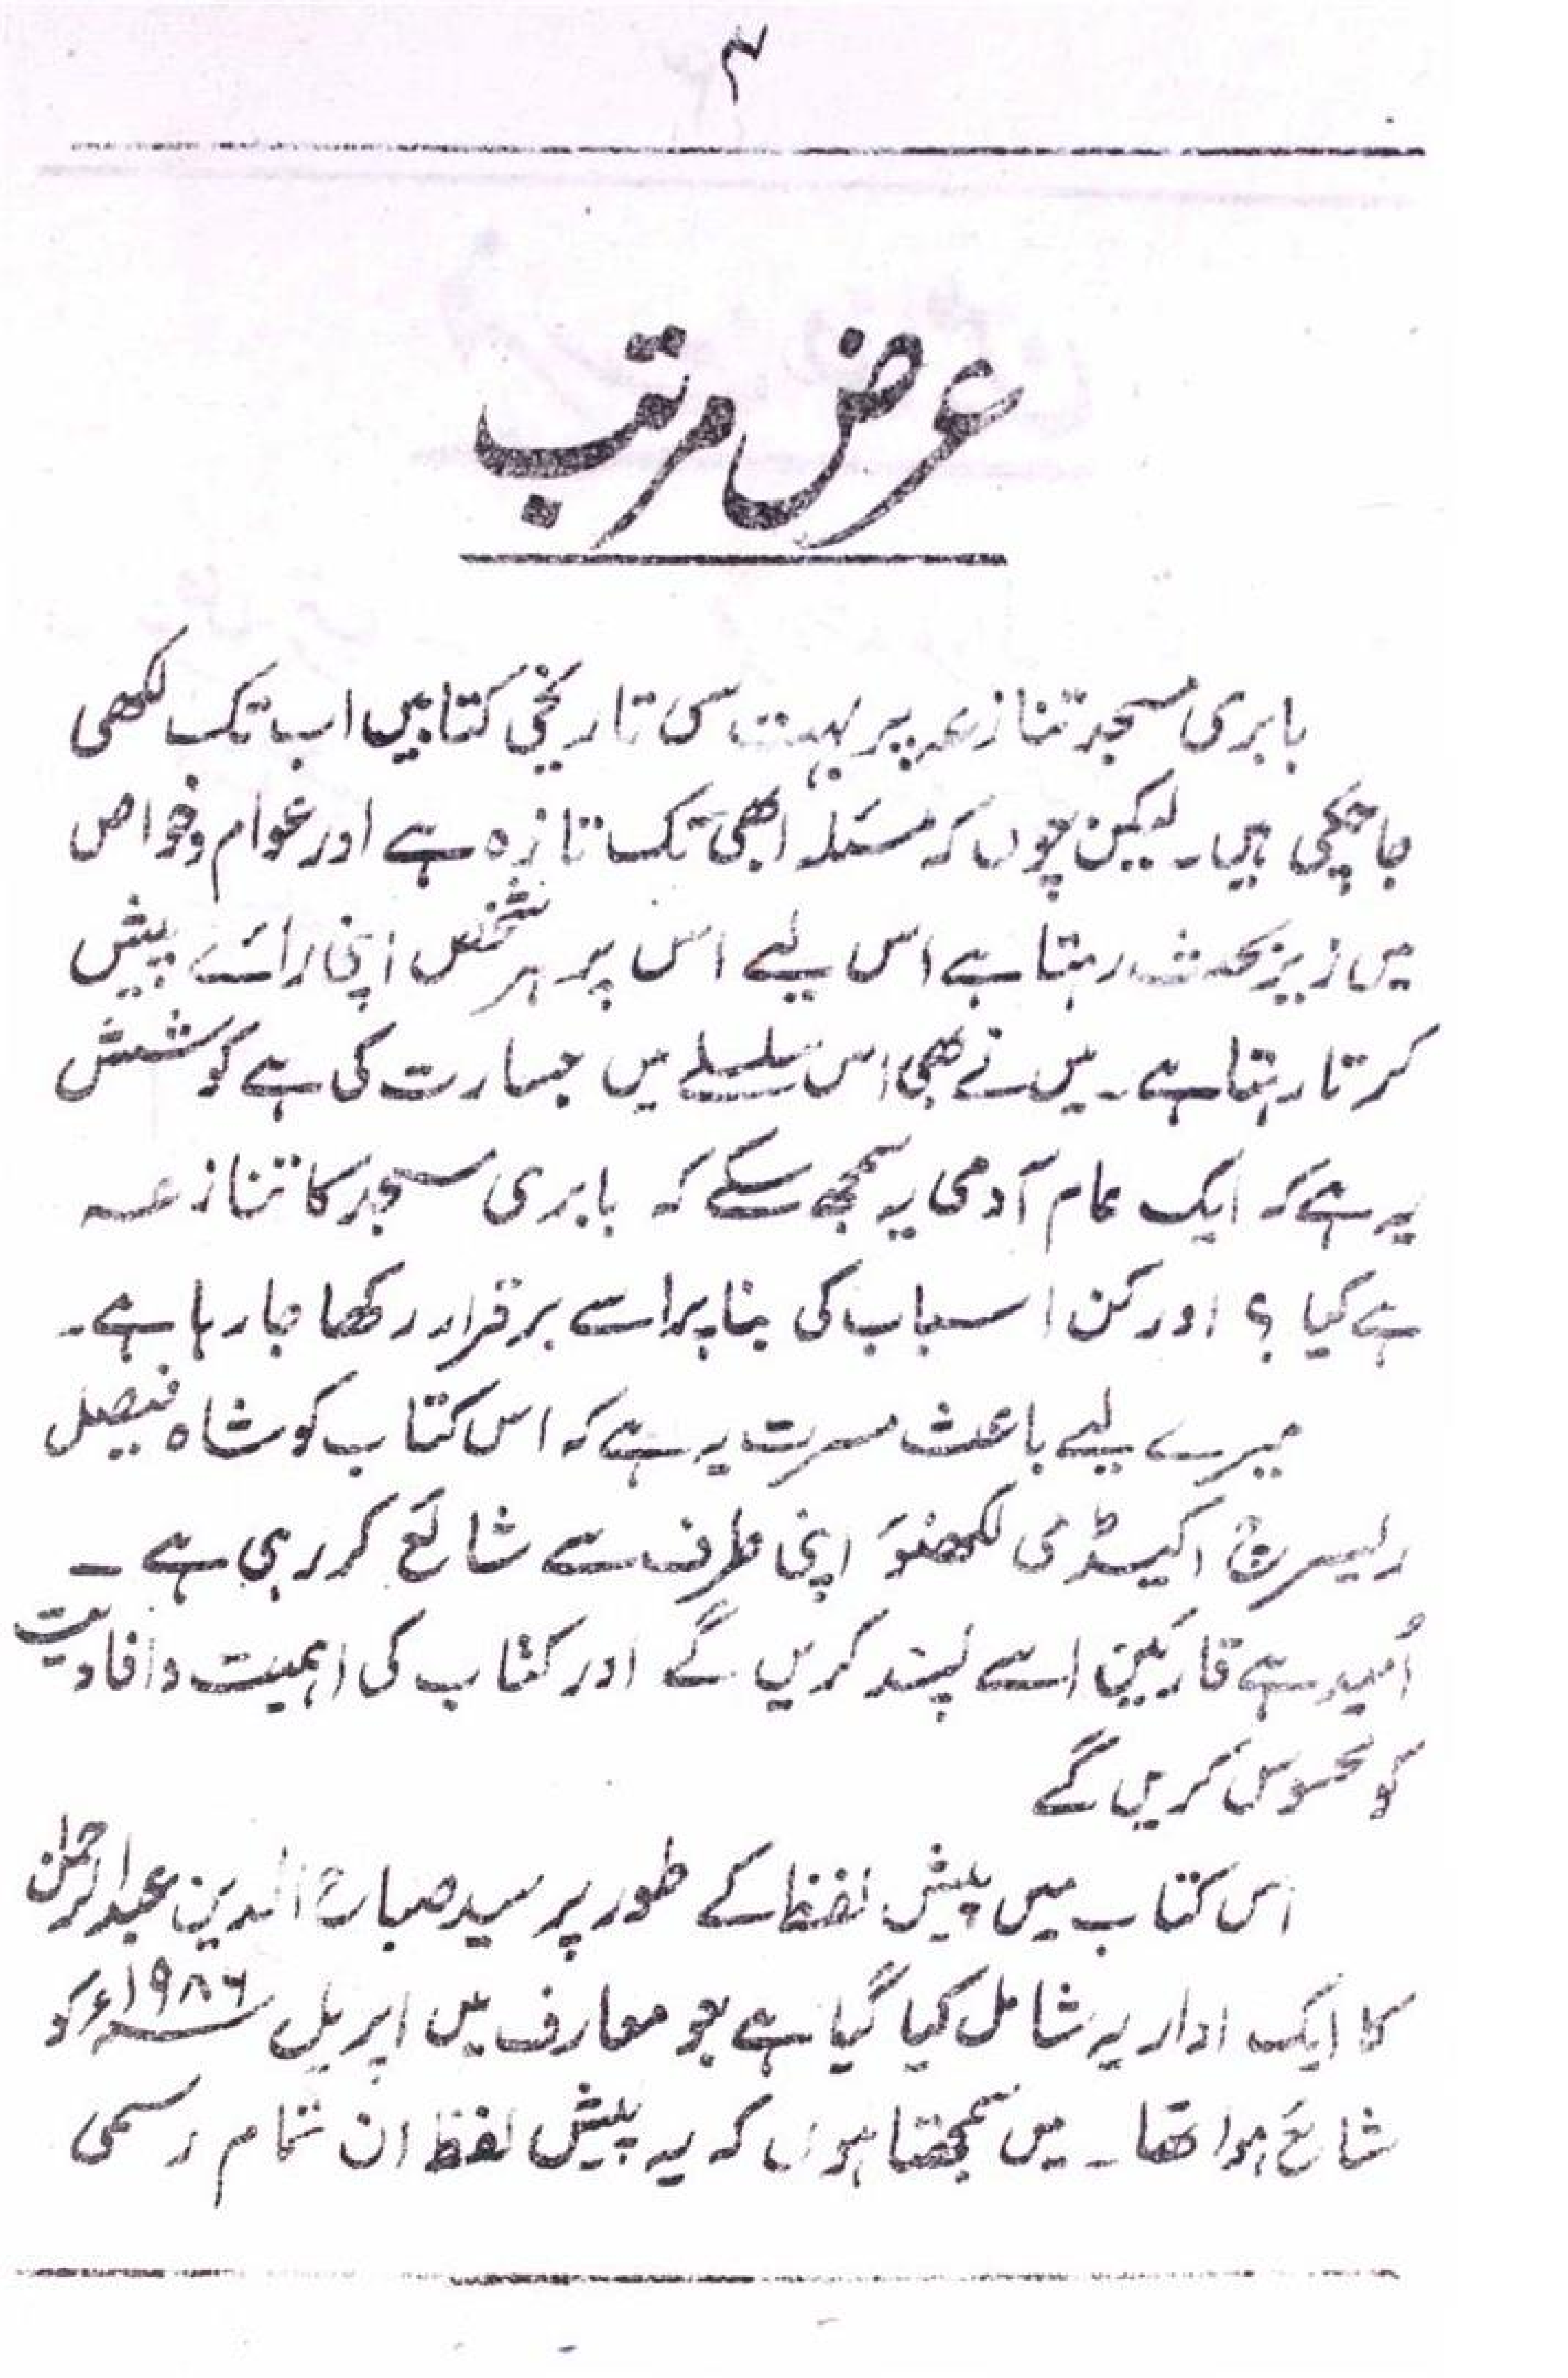 ۴
عرض مرتب
بابری مسجد تنازعہ پر بہت سی تاریخی کتابیں اب تک لکھی
جا چکی ہیں۔ لیکن چوں کہ مسئلہ ابھی تک تازہ ہے اور عوام و خواص
میں زیر بحث رہتا ہے اس لیے اس پر ہر شخص اپنی رائے پیش
کرتا رہتا ہے۔ میں نے بھی اس سلسلے میں جسارت کی ہے کوشش
یہ ہے کہ ایک عام آدمی یہ سمجھ سکے کہ بابری مسجد کا تنازعہ
ہے کیا؟ اور کن اسباب کی بنا پر اسے برقرار رکھا جا رہا ہے۔
میرے لیے باعث مسرت یہ ہے کہ اس کتاب کو شاہ فیصل
ریسرچ اکیڈمی لکھنؤ اپنی طرف سے شائع کر رہی ہے۔
اُمید ہے قارئین اسے پسند کریں گے اور کتاب کی اہمیت و افادیت
کو محسوس کریں گے
اس کتاب میں پیش لفظ کے طور پر سید صباح الدین عبدالرحمٰن
کا ایک اداریہ شامل کیا گیا ہے جو معارف میں اپریل ۱۹۸۶ء کو
شائع ہوا تھا۔ میں سمجھتا ہوں کہ یہ پیش لفظ ان تمام رسمی